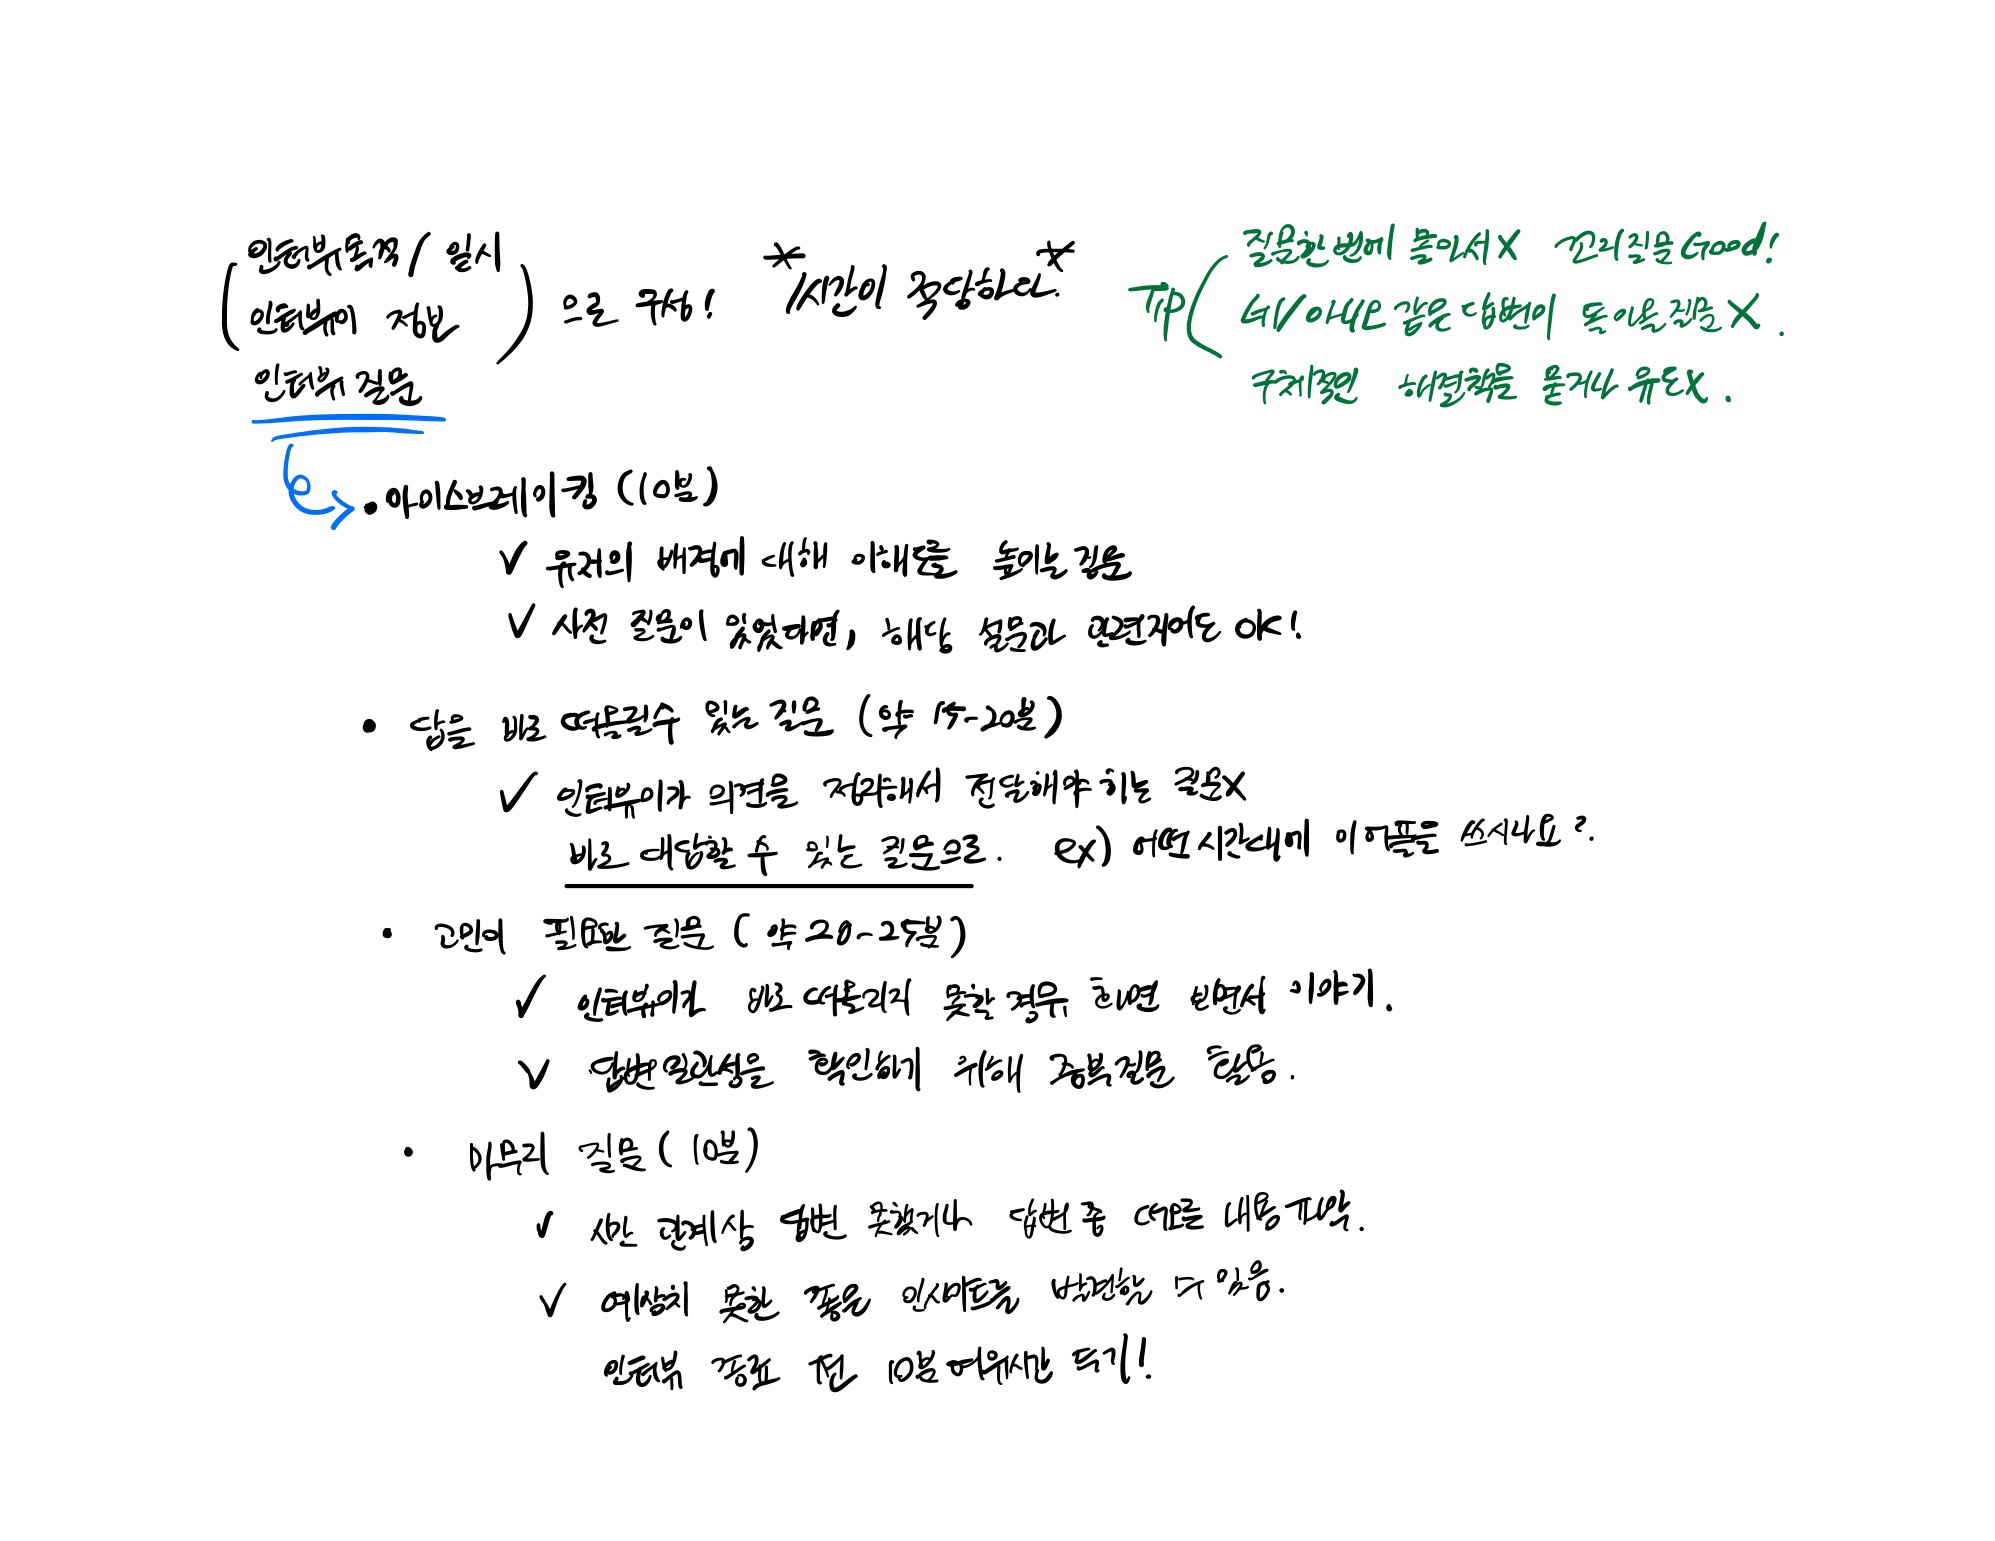 인터뷰목적/ 일시
인터뷰이 정보
인터뷰 질문
으로 구성!
*1시간이 적당하다.*
Tip
질문한번에 몰아서X 꼬리질문Good!
네/아니오 같은 답변이 돌아올질문X.
구체적인 해결책을 묻거나 유도X.
• 아이스브레이킹 (10분)
✓ 유저의 배경에 대해 이해도를 높이는 질문
✓ 사전 질문이 있었다면, 해당 설문과 관련지어도 OK!
• 답을 바로 떠올릴수 있는 질문 (약 15-20분)
✓ 인터뷰이가 의견을 정리해서 전달해야 하는 질문X
바로 대답할 수 있는 질문으로. ex) 어떤 시간대에 이 어플을 쓰시나요?.
• 고민이 필요한 질문 (약 20-25분)
✓ 인터뷰이가 바로 떠올리지 못할 경우 화면 보면서 이야기.
✓ 답변 일관성을 확인하기 위해 중복질문 활용.
• 마무리 질문 (10분)
✓ 시간 관계상 답변 못했거나 답변 중 떠오른 내용 파악.
✓ 예상치 못한 좋은 인사이트를 발견할 수 있음.
인터뷰 종료 전 10분 여유시간 두기!